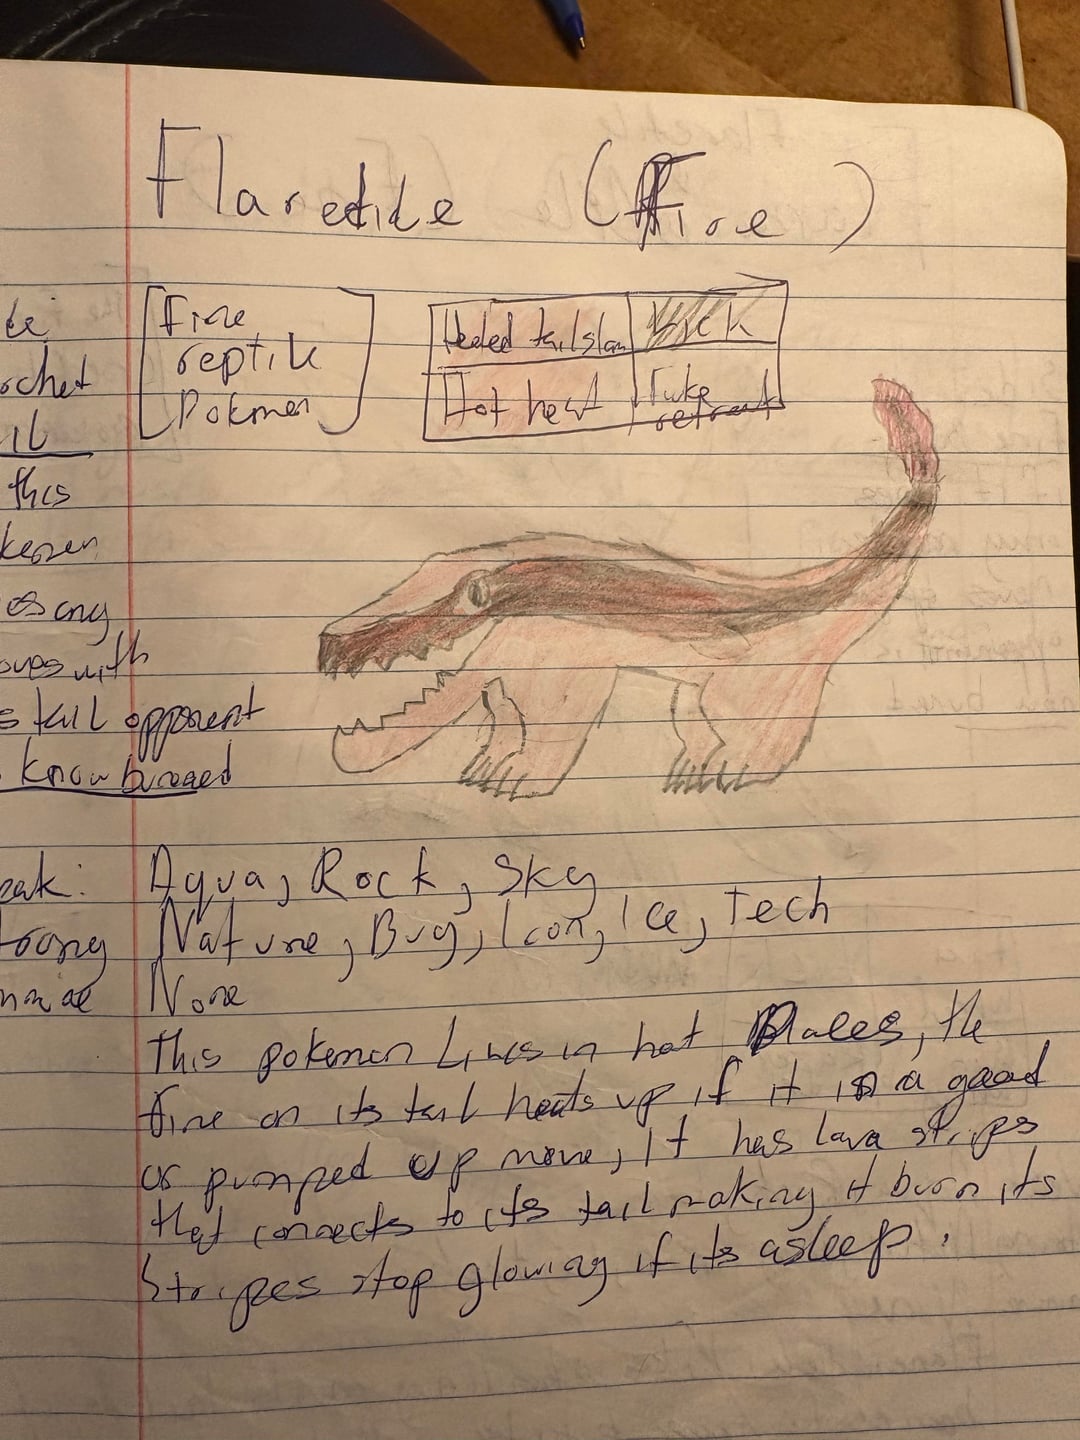 Flaretile (Fire)
Fire
reptile
Pokmen
Heated tail slam
Kick
Hot heat
Take
retreat
ochet
il
this
kemen
es any
oves with
s tail opponent
know burned
eak: Aqua, Rock, Sky
trong Nature, Bug, Iron, Ice, Tech
None
This pokemon Lives in hot Places, the
fire on its tail heats up if it is a good
or pumped up move, It has lava stripes
that connects to its tail making it burn its
Stripes stop glowing if its asleep.